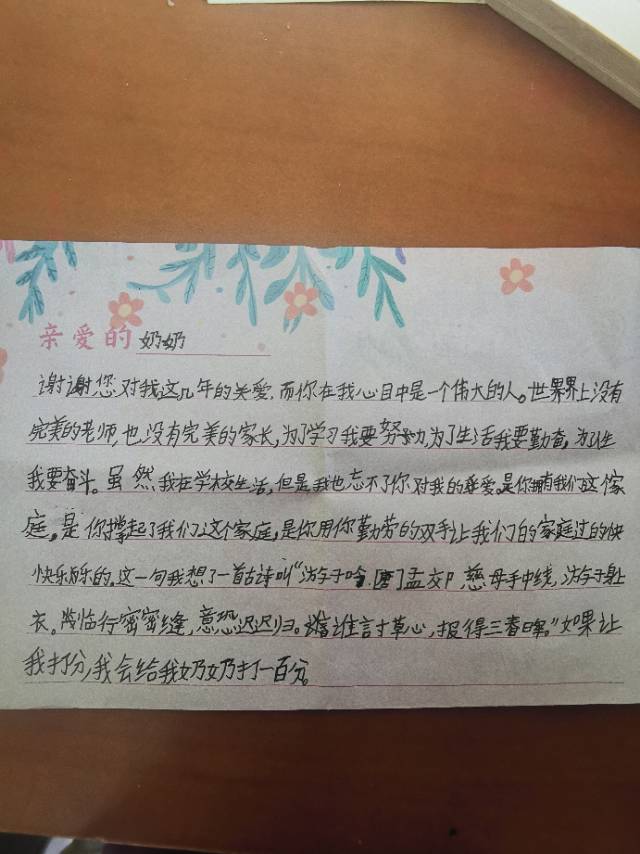 亲爱的奶奶
谢谢您对我这几年的关爱,而你在我心目中是一个伟大的人。世界界上没有
完美的老师,也没有完美的家长,为了学习我要努力,为了生活我要勤奋,为了
我要奋斗。虽然我在学校生活,但是我也忘不了你对我的慈爱。是你拥有我们这个家
庭,是你撑起了我们这个家庭,是你用你勤劳的双手让我们的家庭过的快
快乐乐的。这一句我想了一首古诗叫“游子吟 唐孟郊 慈母手中线,游子身上
衣。临行密密缝,意恐迟迟归。谁言寸草心,报得三春晖。”如果让
我打分,我会给我奶奶打一百分。